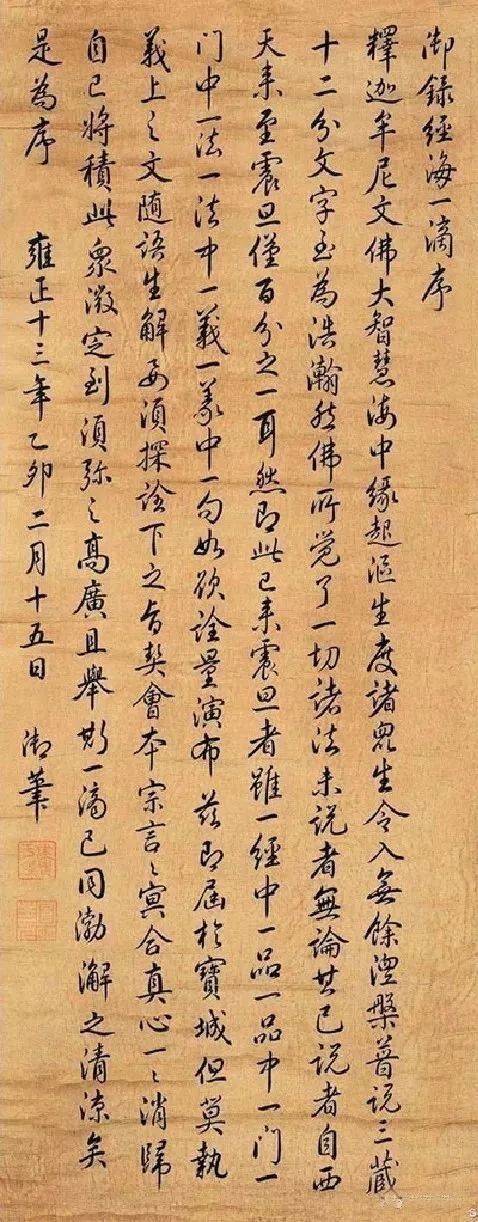 御録經海一滴序
釋迦牟尼文佛大智慧海中緣起漚生度諸眾生令入無餘涅槃普說三藏
十二分文字至為浩瀚然佛所覺了一切諸法未說者無論其已說者自西
天來至震旦僅百分之一耳然即此已來震旦者雖一經中一品一品中一門一
门中一法一法中一義一義中一句如欲詮量演布茲即屆於寶城但莫執
義上之文随語生解要須探詮下之旨契會本宗言〻冥合真心一〻消歸
自已將積此眾微定到須弥之高廣且舉斯一滴已同渤澥之清涼矣
是為序
雍正十三年乙卯二月十五日
御筆